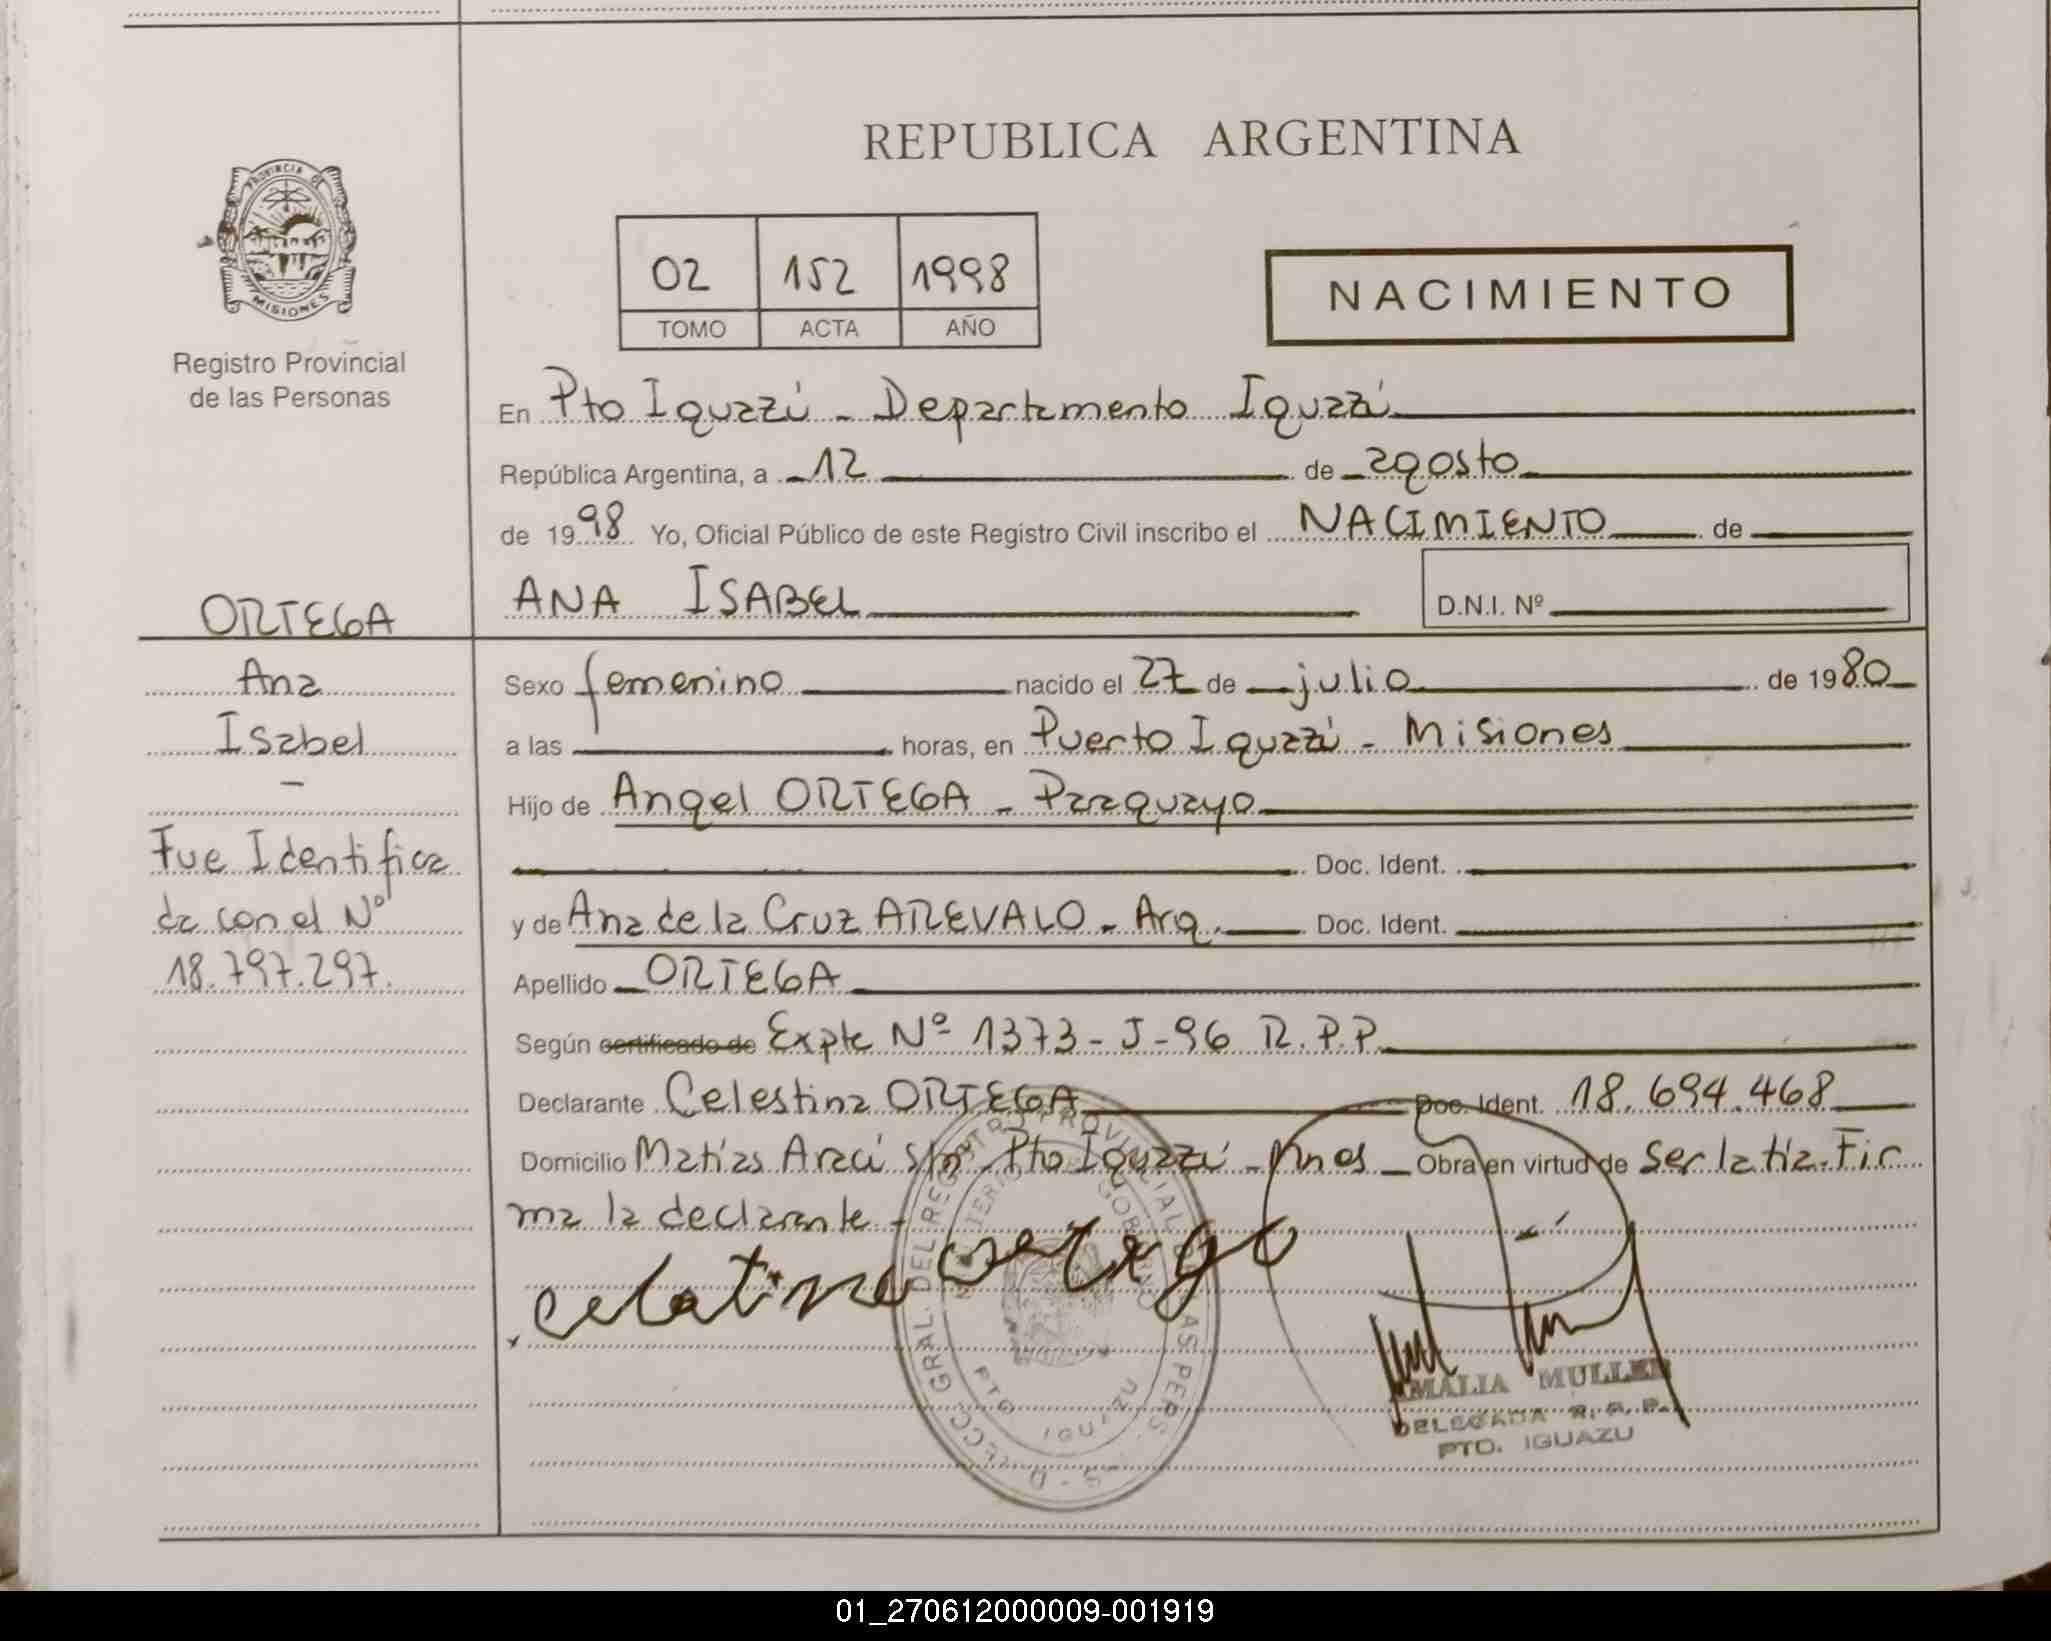 REPUBLICA ARGENTINA
PROVINCIA DE
MISIONES
Registro Provincial
de las Personas
02 152 1998
TOMO ACTA AÑO
NACIMIENTO
En Pto Iguazú - Departamento Iguazú
República Argentina, a 12 de agosto
de 1998 Yo, Oficial Público de este Registro Civil inscribo el NACIMIENTO de
ANA ISABEL D.N.I. Nº
ORTEGA
Ana
Isabel
-
Fue Identifica
da con el Nº
18.797.297.
Sexo femenino nacido el 27 de julio de 1980
a las horas, en Puerto Iguazú - Misiones
Hijo de Angel ORTEGA - Paraguayo
Doc. Ident.
y de Ana de la Cruz AREVALO - Arg. Doc. Ident.
Apellido ORTEGA
Según certificado de Expte Nº 1373-J-96 R.P.P.
Declarante Celestina ORTEGA Doc. Ident. 18.694.468
Domicilio Matías Araci s/n - Pto Iguazú - Mnes Obra en virtud de ser la tía. Fir
ma la declarante -
celatina ortego
DIRECC. GRAL. DEL REGISTRO PROVINCIAL DE LAS PERS.
GOBIERNO
PTO IGUAZU
AMALIA MULLER
DELEGADA R. P. P.
PTO. IGUAZU
01_270612000009-001919